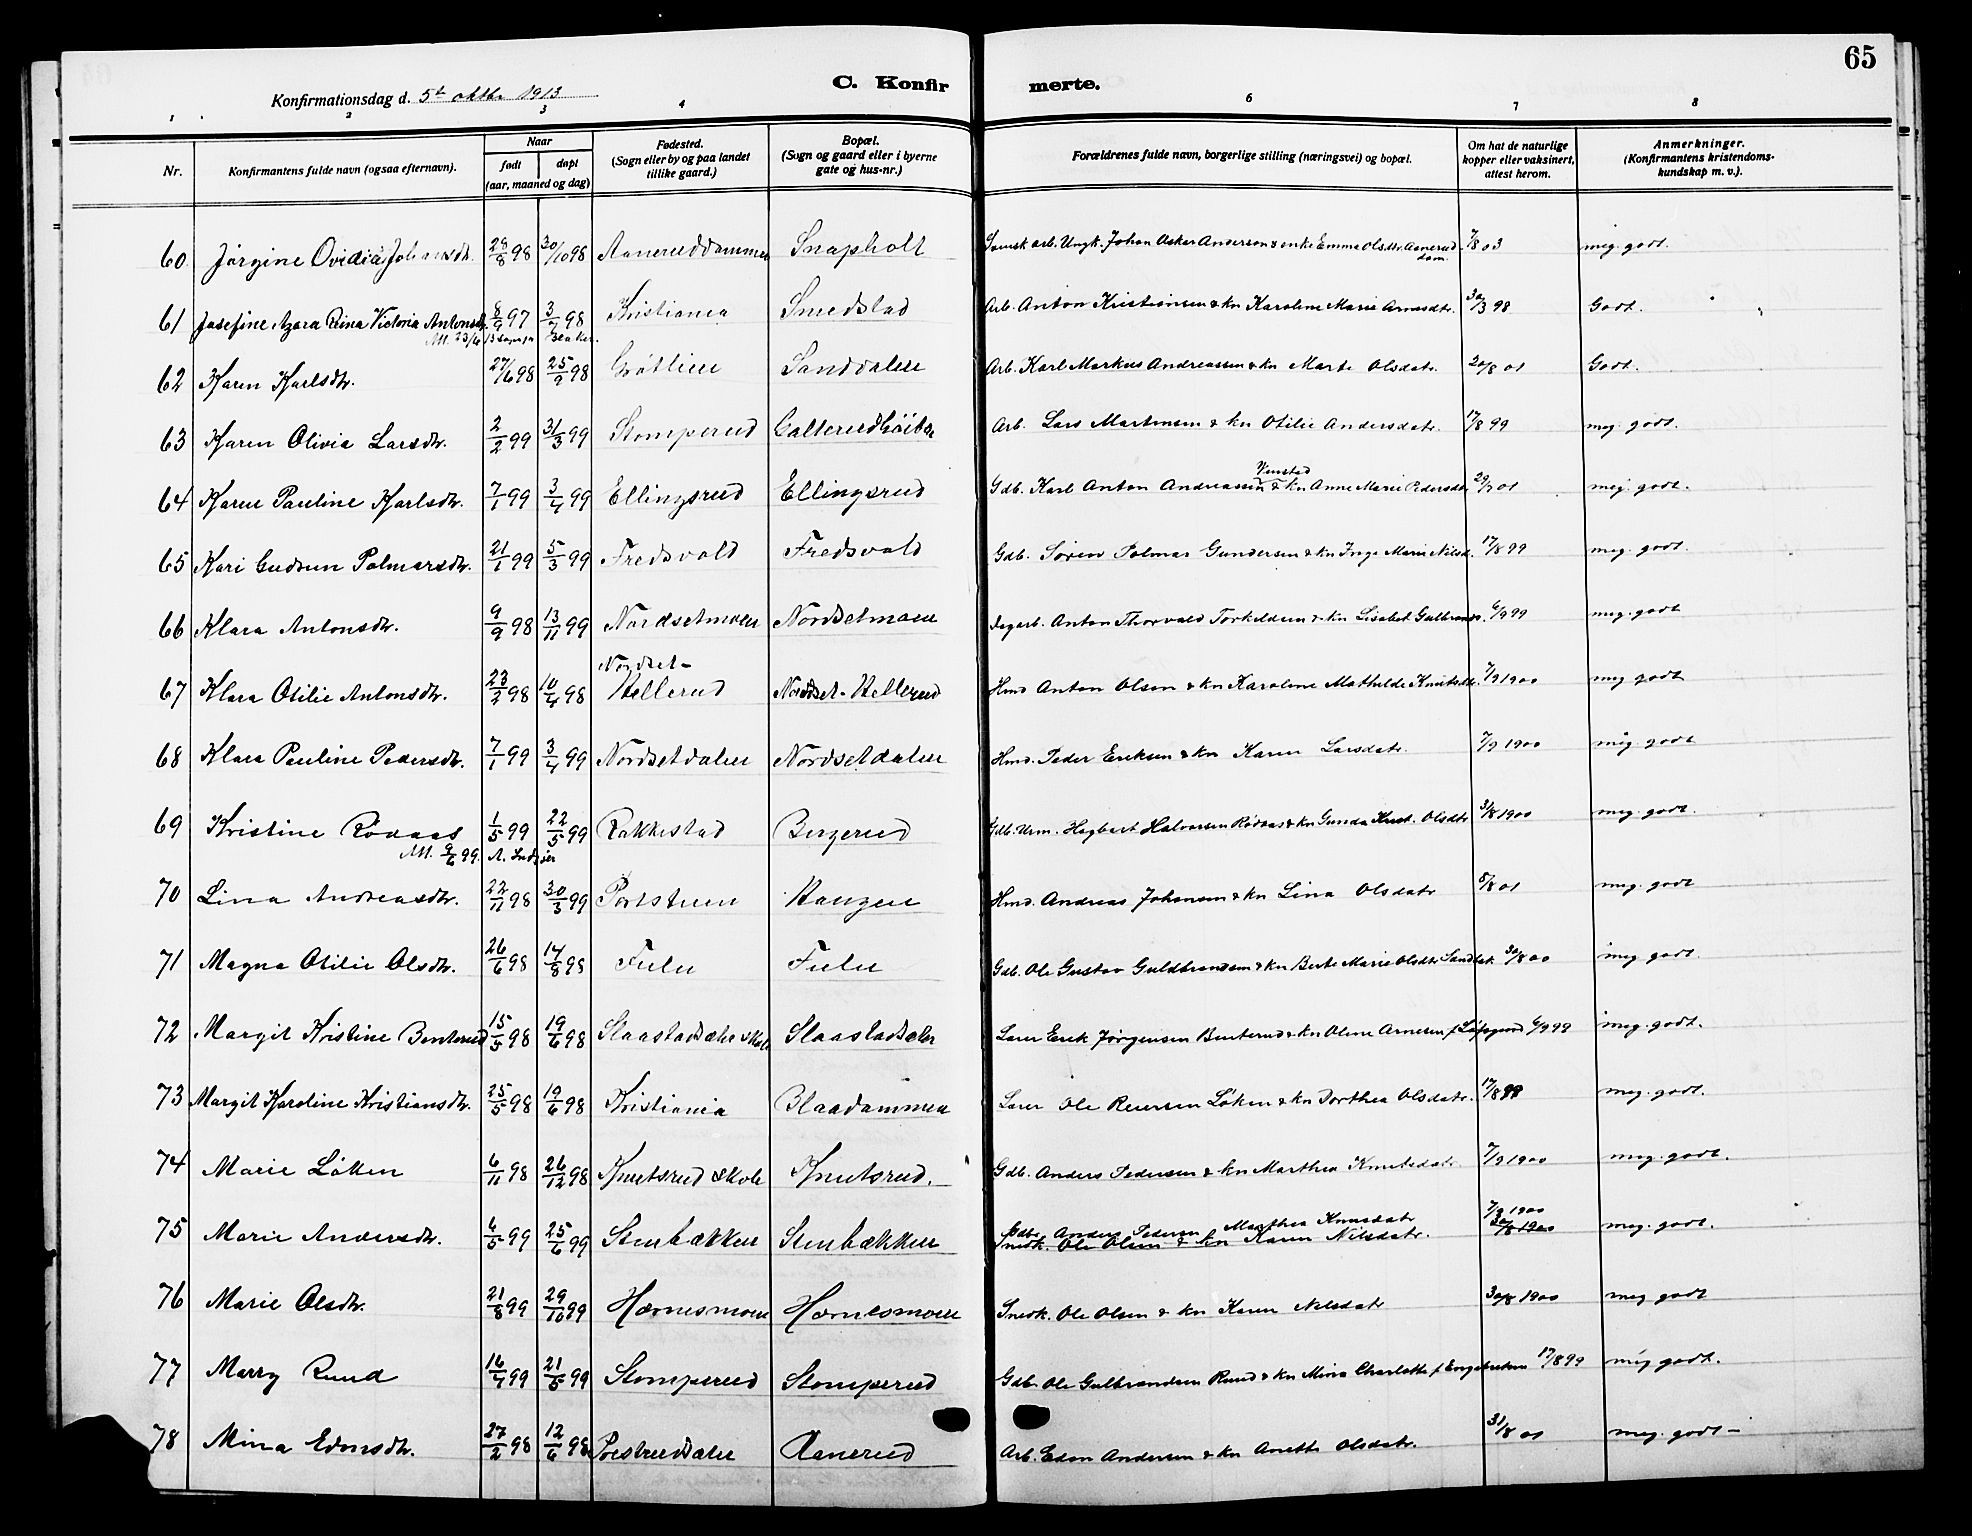 65
C. Konfirmerte.
Konfirmationsdag d. 5te oktbr 1913
1 2 3 4 6 7 8
Nr. Konfirmantens fulde navn (ogsaa efternavn). Naar født døpt (aar, maaned og dag) Fødested. (Sogn eller by og paa landet tillike gaard.) Bopæl. (Sogn og gaard eller i byerne gate og hus-nr.) Forældrenes fulde navn, borgerlige stilling (næringsvei) og bopæl. Om hat de naturlige kopper eller vaksinert, attest herom. Anmerkninger. (Konfirmantens kristendomskundskap m. v.).
60 Jørgine Ovidia Johansdtr. 28/8 98 30/10 98 Aaneruddammen Snapholt Svensk arb. Ungk. Johan Oskar Anderson & enke Emma Olsdtr. Aanerud dam. 7/8 03 meg. godt.
61 Josefine Azora Rina Victoria Antonsdtr. 8/9 97 3/7 98 Kristiania Smedstad Arb. Anton Kristiansen & kn Karoline Marie Arnesdtr. 30/3 98 Godt.
62 Karen Karlsdtr. 27/6 98 25/9 98 Sanddalen Arb. Karl Markus Andreassen & kn Marte Olsdatr. 20/8 01 Godt.
63 Karen Olivia Larsdtr. 2/2 99 31/3 99 Stomperud Arb. Lars Martensen & kn Otilie Andersdatr. 17/8 99 meg. godt.
64 Karen Pauline Karlsdtr. 7/1 99 3/4 99 Ellingsrud Ellingsrud Gdb. Karl Anton Andreassen & kn Anne Marie Pedersdtr 01 meg. godt.
65 Kari Gudrun Palmarsdtr. 21/1 99 5/3 99 Fredsvold Fredsvold Gdb. Søren Palmar Gundersen & kn Inge Marie Nilsd. 17/8 99 meg. godt.
66 Klara Antonsdtr. 9/9 98 13/11 99 Nordsetmoen Nordsetmoen Dagarb. Anton Thorvald Torkildsen & kn Lisabet Gulbrands. 6/9 99 meg. godt
67 Klara Otilie Antonsdtr. 23/2 98 10/4 98 Nordset-Hellerud Nordset-Hellerud Hmd Anton Olsen & kn Karoline Mathilde Knutsdtr. 7/9 1900 meg godt
68 Klara Pauline Pedersdtr. 7/1 99 3/4 99 Nordsetdalen Nordsetdalen Hmd. Peder Eriksen & kn Karen Larsdatr. 7/9 1900 meg godt
69 Kristine Rødaas 1/5 99 22/5 99 Rakkestad Bergerud Gdb. Urm. Hagbart Halvorsen Rødaas & kn Gunda Krist. Olsdtr 31/8 1900 meg. godt.
70 Lina Andreasdtr. 22/11 98 30/3 99 Haugen Hmd. Andreas Johansen & kn Lina Olsdatr 8/8 01 meg. godt
71 Magna Otilie Olsdtr. 26/6 98 14/8 98 Fulu Fulu Gdb. Ole Gustav Guldbrandsen & kn Berte Marie Olsdtr 30/8 00 meg. godt.
72 Margit Kristine Benterud 15/5 98 19/6 98 Slaastadsæter Skole Slaastadsæter Lærer Erik Jørgensen Benterud & kn Oline Arnesen 6/9 99 meg. godt.
73 Margit Karoline Kristiansdtr. 25/5 98 19/6 98 Kristiania Blaadammen Lærer Ole Reiersen Løken & kn Dorthea Olsdatr. 17/8 99 meg. godt.
74 Marie Løken 6/11 98 26/12 98 Knutsrud Skole Knutsrud. Gdb. Anders Pedersen & kn Marthea Knutsdatr. 7/9 1900 meg. godt.
75 Marie Andersdtr. 4/5 99 25/6 99 Stenbækken Stenbækken Gdb. Anders Pedersen Marthea Knutsdatr 7/9 1900
Snedk. Ole Olsen & kn Karen Nilsdatr. 30/8 1900 meg. godt.
76 Marie Olsdtr. 21/8 99 29/10 99 Hærnesmoen Hærnesmoen Snedk. Ole Olsen & kn Karen Nilsdatr 30/8 1900 meg godt
77 Marry Ruud 16/4 99 21/5 99 Stomperud Stomperud Gdb. Ole Gulbrandsen Ruud & kn Mina Charlotte f Engebretsen 17/8 99 meg godt.
78 Mina Edonsdtr. 27/2 98 12/6 98 Aanerud Arb. Edon Andersen & kn Anette Olsdatr. 31/8 01 meg. godt